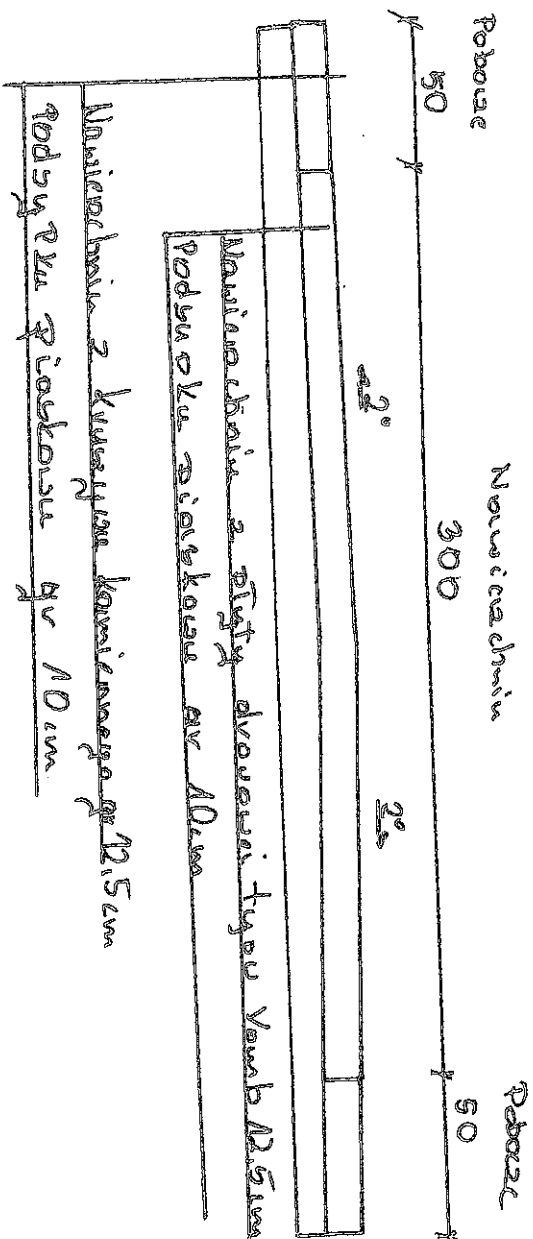 Pobocze Nawierzchnia Pobocze
50 300 50
2° 2°
Nawierzchnia z płyty drogowej typu Yomb 12,5cm
Podsypka piaskowa gr 10cm
Nawierzchnia z kruszywa kamiennego gr 12,5cm
Podsypka piaskowa gr 10cm